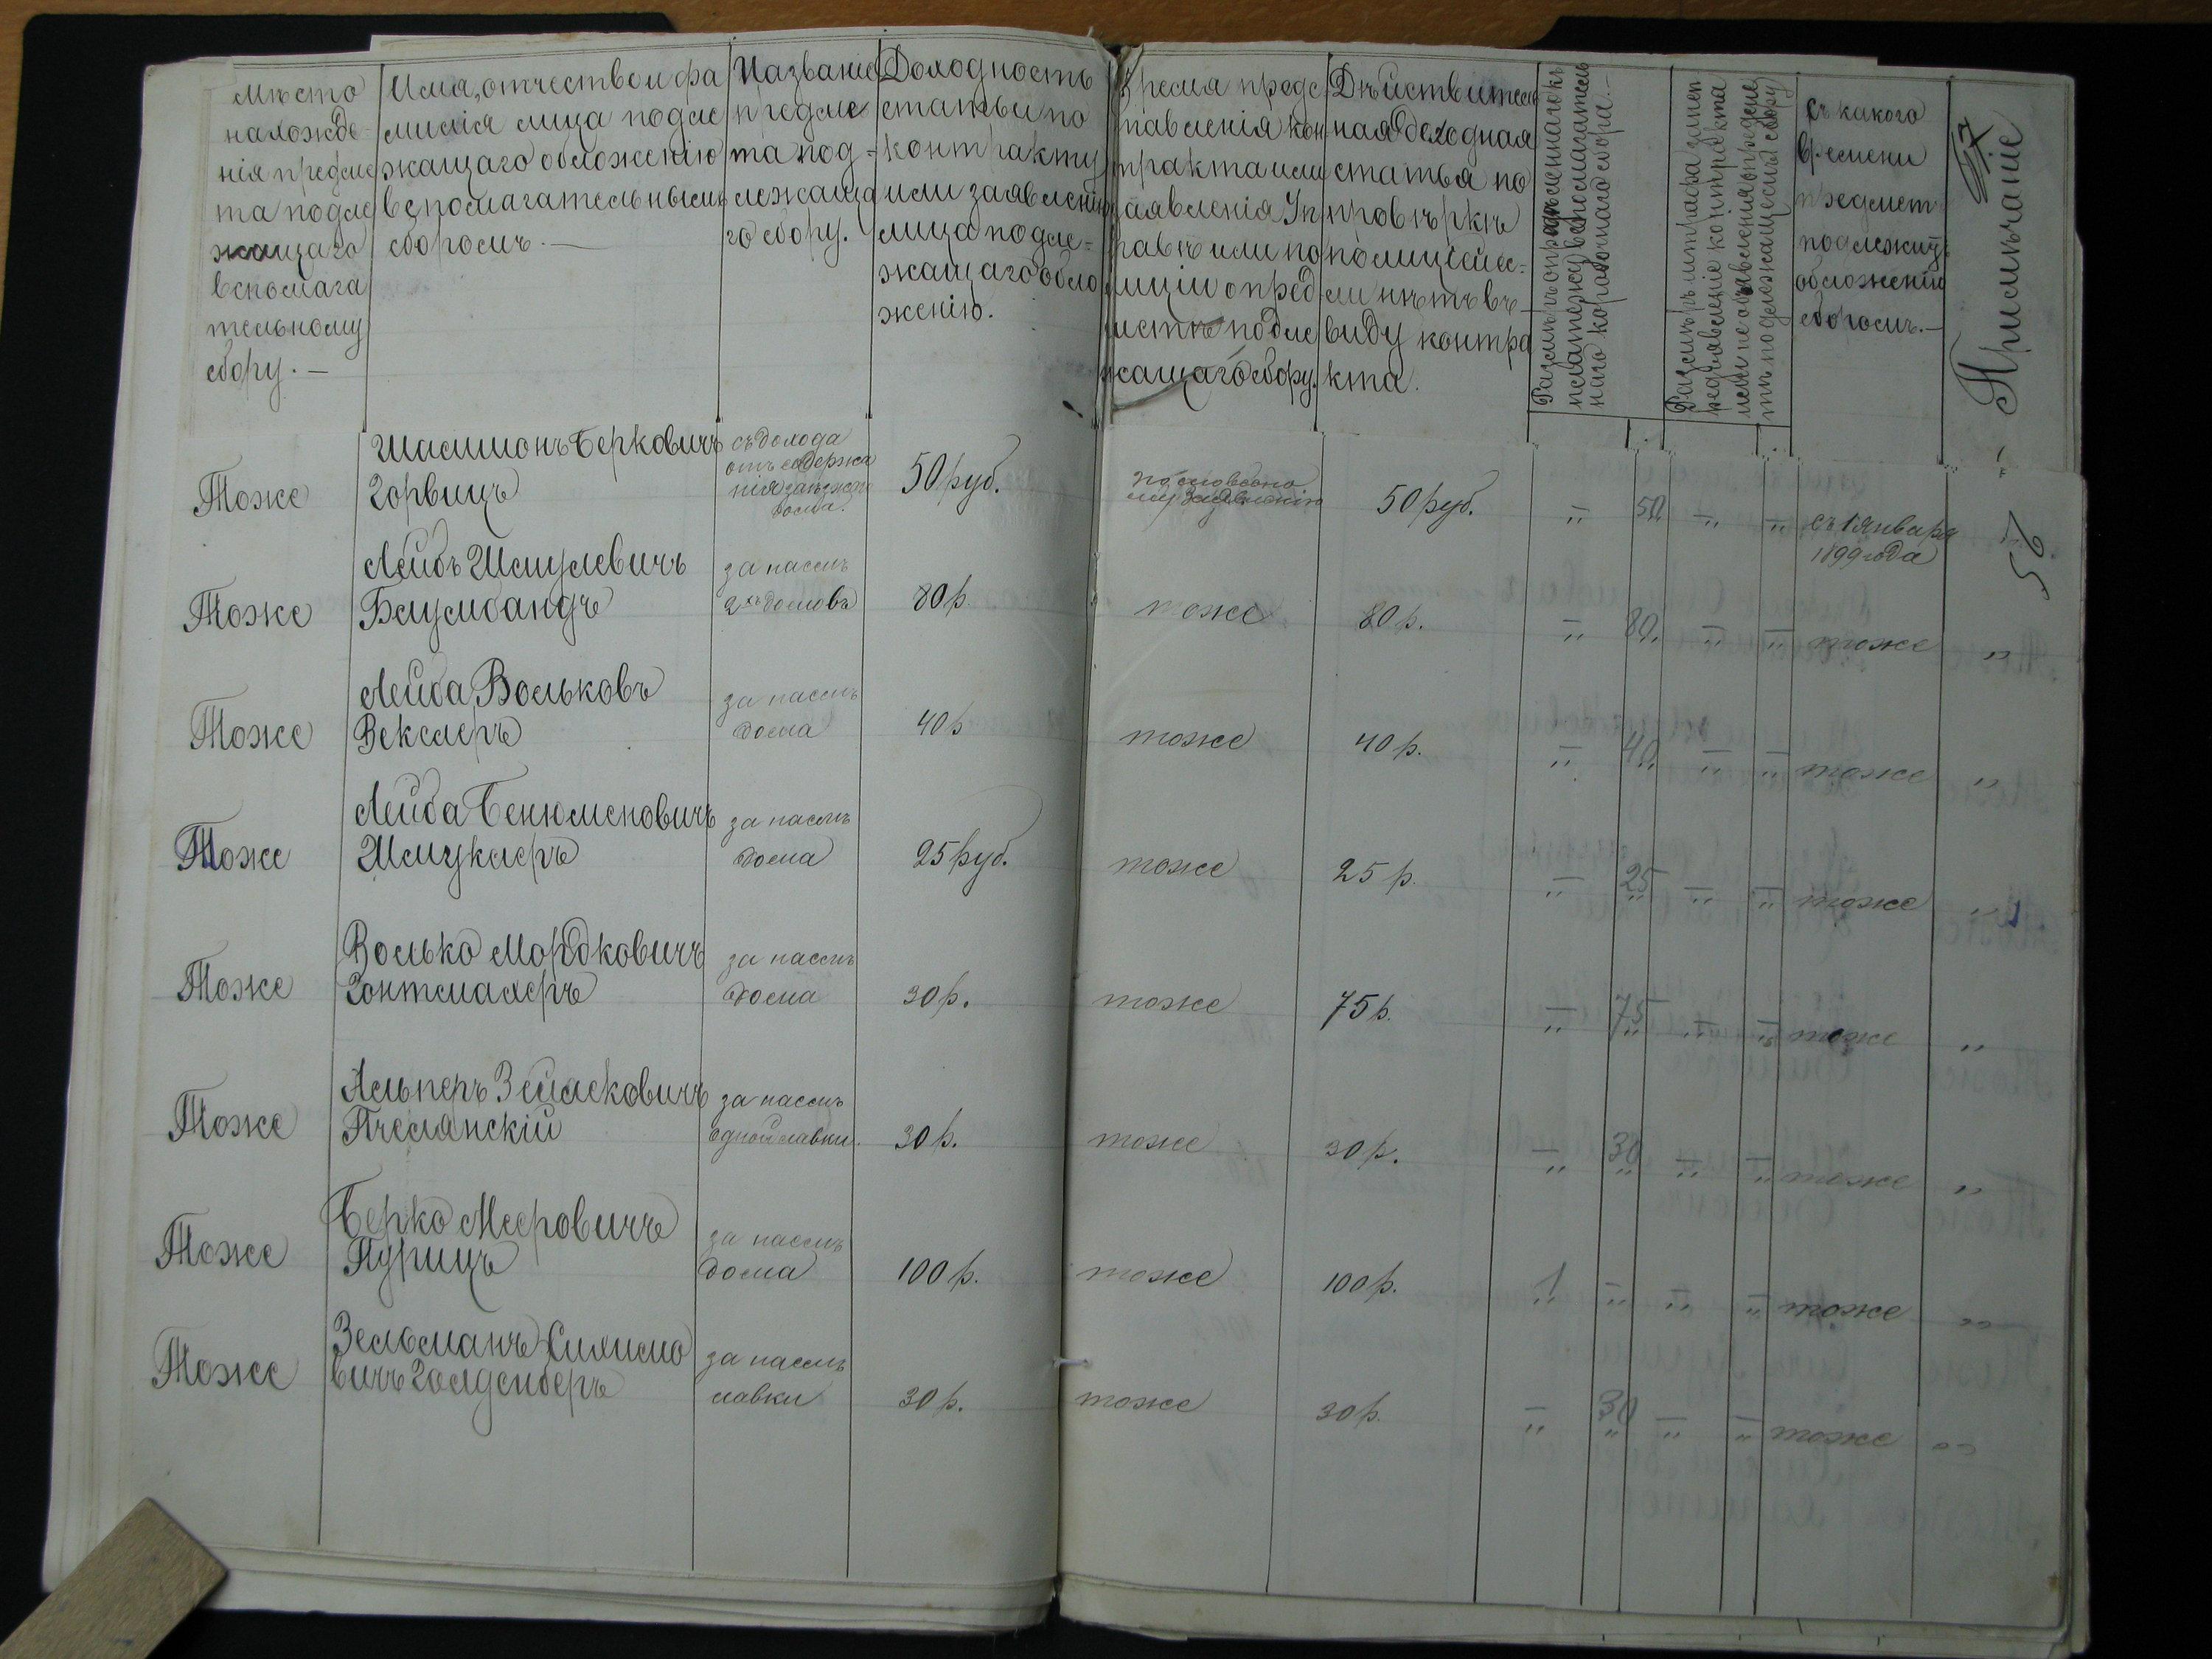 Мѣсто
нахожде-
нія предме
та подле
жащаго
вспомага
тельному
сбору. —
Имя, отчество и фа
милія лица подле
жащаго обложенію
вспомагательнымъ
сборомъ. —
Названіе
предме
та под-
лежаща
го сбору.
Доходность
статьи по
контракту
или заявленію
лица подле=
жащаго обло
женію.
Время предс
тавленія кон
тракта или
заявленія Уп
равѣ или по
лиціи о пред
метѣ подле
жащаго сбору.
Дѣйствитель
ная доходная
статья по
провѣркѣ
полиціей е=
сли нѣтъ въ
виду контра
кта.
Размѣръ опредѣленнаго къ
платежу вспомагатель
наго коробочнаго сбора. —
Размѣръ штрафа за неп
редъявленіе контракта
или не объявленія о предме
тѣ подлежащемъ сбору
съ какого
времени
предметъ
подлежитъ
обложенію
сборомъ. —
Примѣчаніе
56
Тоже Шлимонъ Берковичъ съ дохода
отъ содержа
нія заѣзжаго
дома.
Горвицъ 50 руб. по словесно
му заявленію 50 руб. „ 50 „ „ съ 1 Января
1899 года
Тоже Лейбъ Шмулевичъ за наемъ
Блумбандъ 2хъ домовъ 80 р. тоже 80 р. „ 80 „ „ тоже „
Тоже Лейба Вольковъ за наемъ
Векслеръ дома 40 р тоже 40 р. „ 40 „ „ тоже „
Тоже Лейба Бенюменовичъ за наемъ
Шмуклеръ дома 25 руб. тоже 25 р. „ 25 „ „ тоже „
Тоже Волько Мордковичъ за наемъ
Зонтмахеръ дома 30 р. тоже 75 р. „ 75 „ „ тоже „
Тоже Альперъ Зейлековичъ за наемъ
Пчелянскій одной лавки. 30 р. тоже 30 р. „ 30 „ „ тоже „
Тоже Берко Мееровичъ за наемъ
Пурицъ дома 100 р. тоже 100 р. 1 „ „ „ тоже „
Тоже Зельманъ за наемъ
вичъ Голденберъ лавки 30 р. тоже 30 р. „ 30 „ „ тоже „